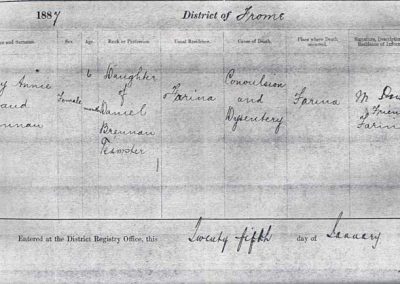 1887 District of Frome
and Surname. Sex Age Rank or Profession. Usual Residence. Cause of Death. Place where Death occurred. Signature, Description Residence of Inform
y Annie
aud
nnan
Female
6
month
Daughter
of
Daniel
Brennan
Teamster
Farina
Convulsion
and
Dysentery
Farina
M
Frien
Farin
Entered at the District Registry Office, this Twenty fifth day of January